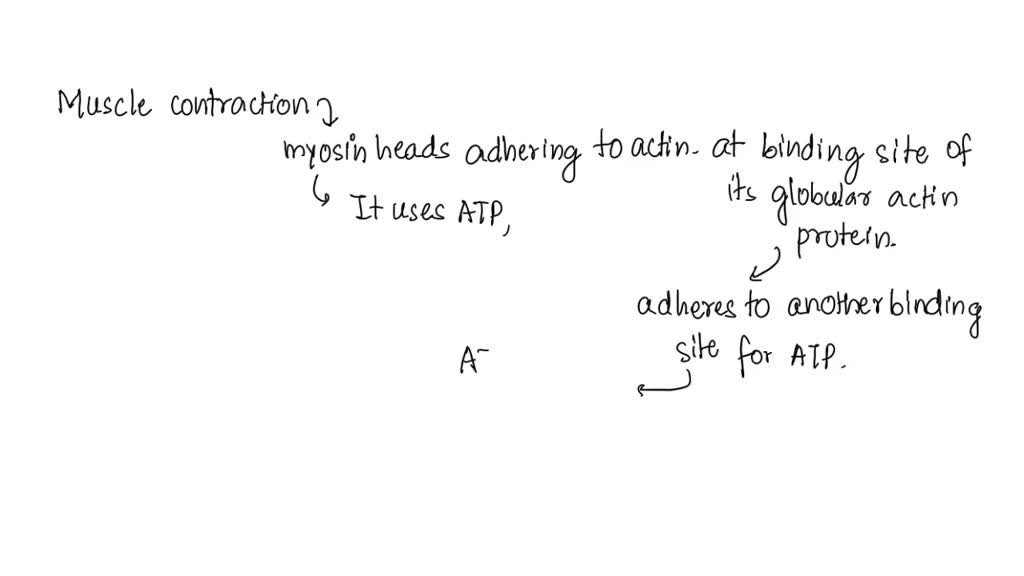 Muscle contraction
myosin heads adhering to actin. at binding site of
its globular actin
protein.
It uses ATP,
adheres to another binding
site for ATP.
A-